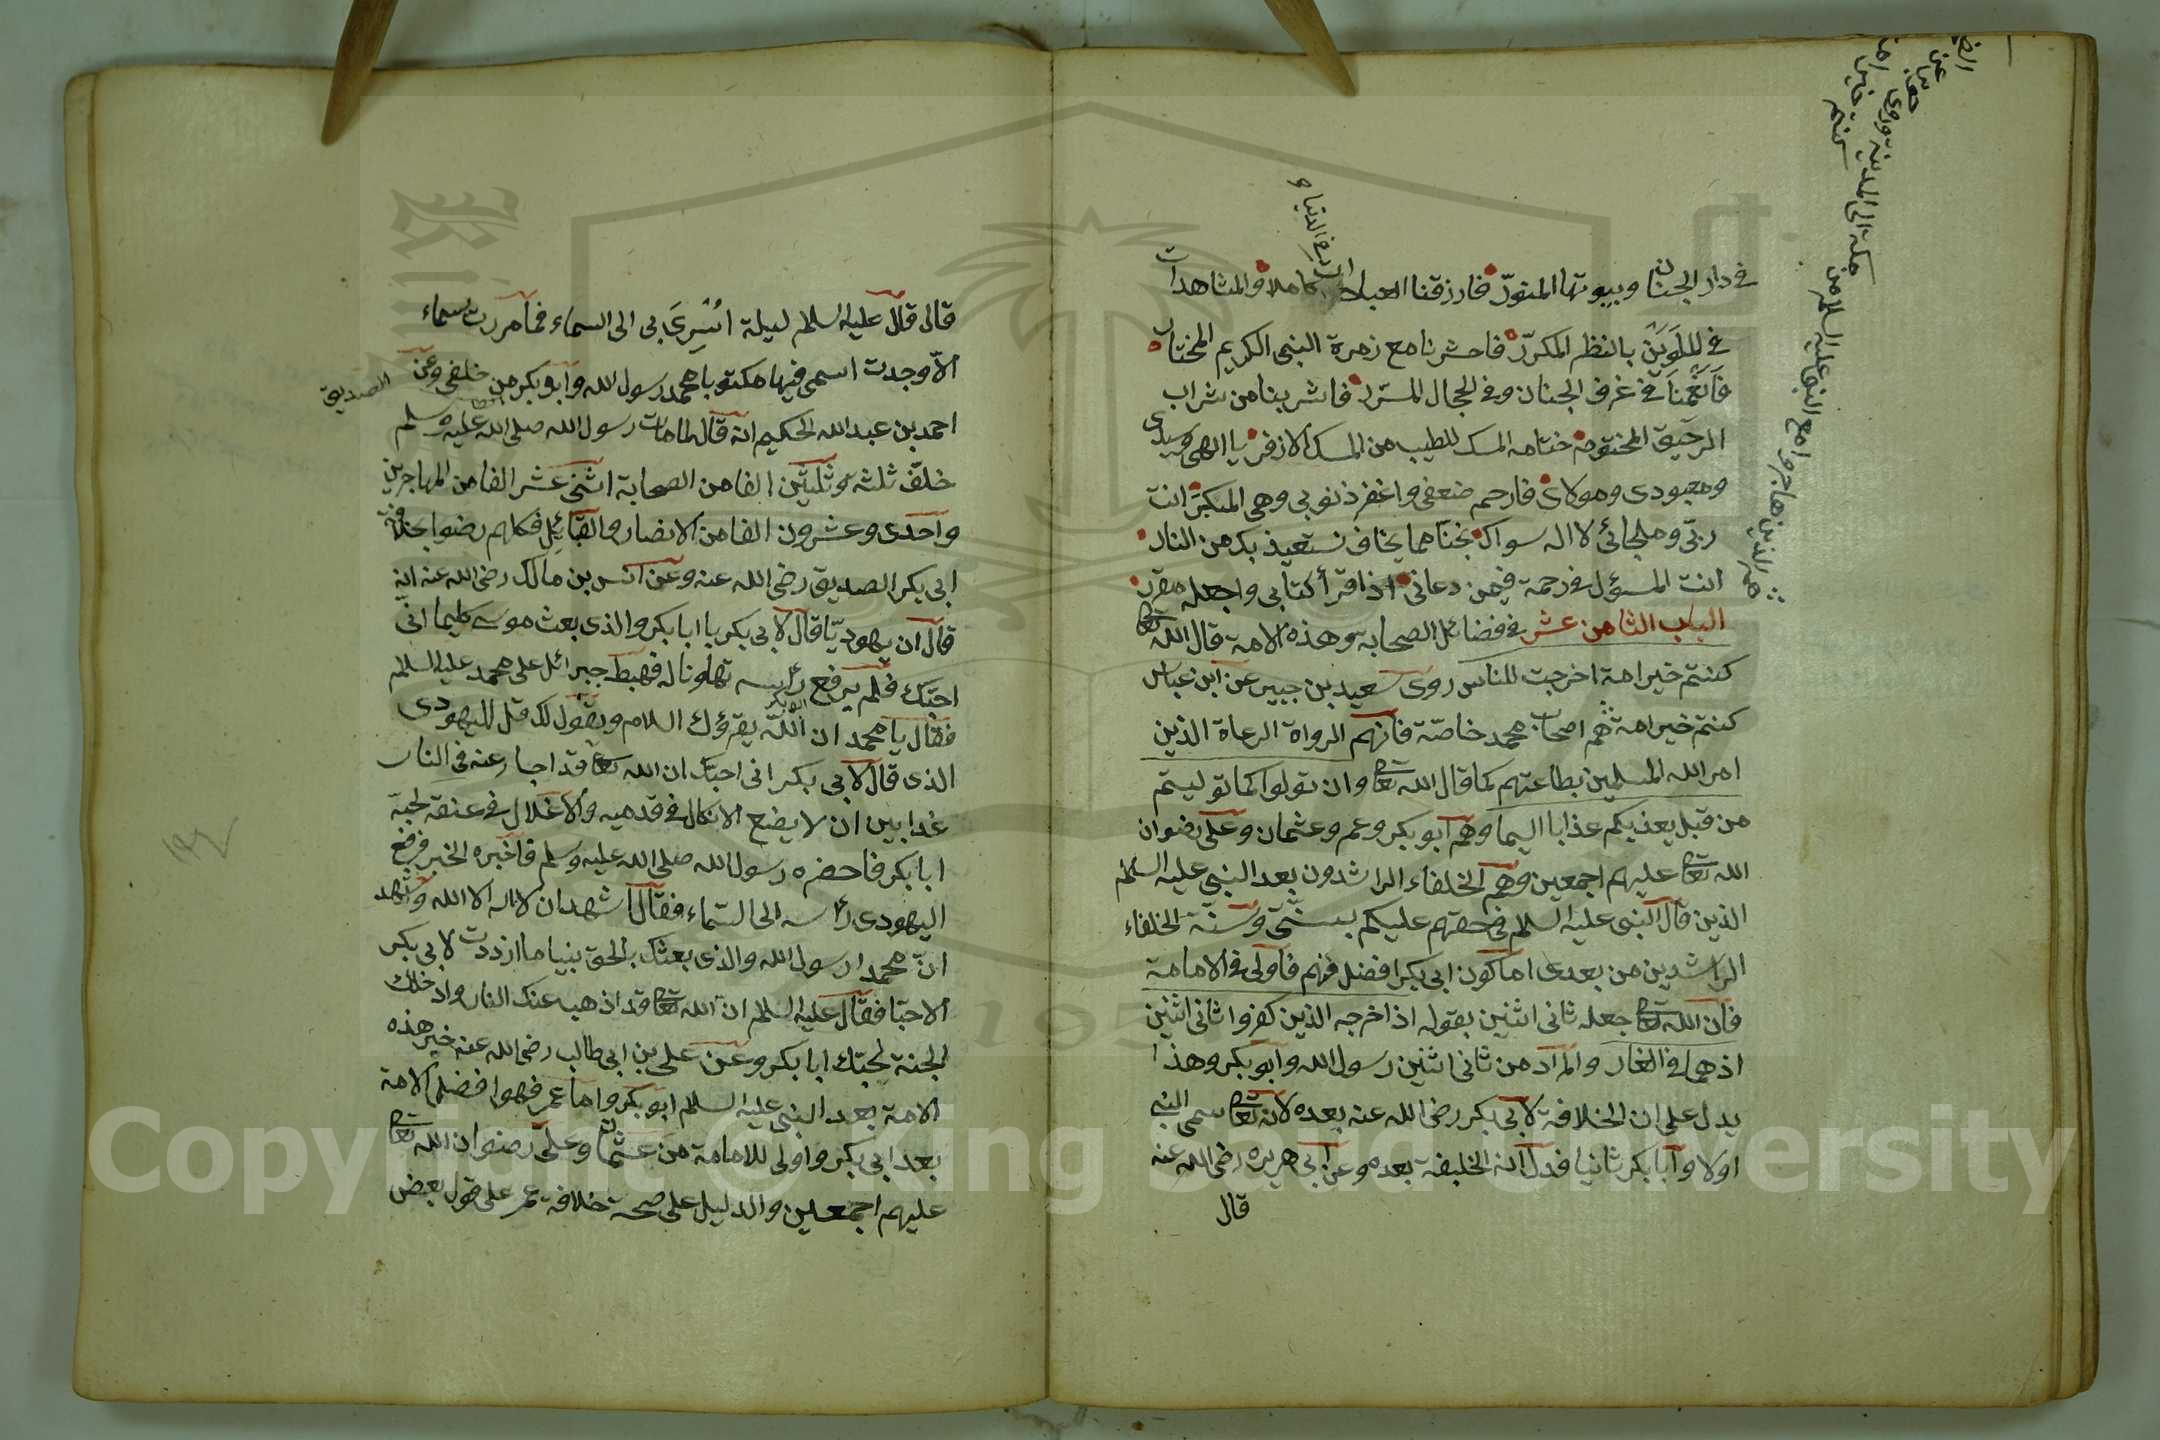 في دار الجنان وبيوتها المنور فارزقنا العبادات في الدنيا كاملا والمشاهدات
في للوين بالنظم المكرر فاحشرنا مع زمرة النبي الكريم المختار
فانعمنا في غرف الجنان وفي الحجال المسرر فاشربنا من شراب
الرحيق المختومة ختامه المسك للطيب من المسك الاذفر يا الهي وسيدي
ومعبودي ومولاي فارحم ضعفي واغفر ذنوبي وهي المتكبر انت
ربي وملجائي لا اله سواك نجنا مما يخاف نستعيذ بك من النار
انت المسؤل في رحمة فيمن دعاني اذا قرأ كتابي واجعله مقر
الباب الثامن عشر في فضائل الصحابة وهذه الامة قال الله تعالى
كنتم خير امة اخرجت للناس روى سعيد بن جبير عن ابن عباس
كنتم خير امة هم اصحاب محمد خاصة فانهم الرواة الرعاة الذين
امر الله المسلمين بطاعتهم كما قال الله تعالى وان تولوا كما توليتم
من قبل يعذبكم عذابا اليما وهم ابو بكر وعمر وعثمان وعلى رضوان
الله تعالى عليهم اجمعين وهم الخلفاء الراشدون بعد النبي عليه السلام
الذين قال النبي عليه السلام في حقهم عليكم بسنتي وسنة الخلفاء
الراشدين من بعدى اما كون ابي بكر افضل فهم فاولى في الامامة
فان الله تعالى جعله ثاني اثنين بقوله اذ اخرجه الذين كفروا ثاني اثنين
اذ هما في الغار والمراد من ثاني اثنين رسول الله وابو بكر وهذا
يدل على ان الخلافة لابي بكر رضي الله عنه بعده لانه تعالى سمى النبي
اولا وابا بكر ثانيا فدل انه الخليفة بعده وعن ابي هريرة رضي الله عنه
قال
هم الذين هاجروا مع النبي عليه السلام من
مكة الى المدينة وروى
قال قال عليه السلام ليلة اسري بي الى السماء فما مررت بسماء
الا وجدت اسمى فيها مكتوبا محمد رسول الله وابو بكر من خلفي وعن
الصديق
احمد بن عبد الله الحكيم انه قال لما مات رسول الله صلى الله عليه وسلم
خلف ثلثة وثلثين الفا من الصحابة اثنى عشر الفا من المهاجرين
واحدى وعشرون الفا من الانصار والقبائل فكلهم رضوا بخلافة
ابي بكر الصديق رضي الله عنه وعن انس بن مالك رضي الله عنه انه
قال ان يهوديا قال لابي بكر يا ابا بكر والذي بعث موسى كليما اني
احبك فلم يرفع ابو بكر رأسه تهاونا له فهبط جبرائل على محمد عليه السلام
فقال يا محمد ان الله يقرؤك السلام ويقول لك قل لليهودى
الذى قال لابي بكر اني احبك ان الله تعالى قد اجار عنه في النار
غدا بين ان لا يضع الانكال في قدميه والاغلال في عنقه لحبه
ابا بكر فاحضره رسول الله صلى الله عليه وسلم فاخبره الخبر فرفع
اليهودى رأسه الى السماء فقال اشهد ان لا اله الا الله واشهد
ان محمدا رسول الله والذى بعثك بالحق بنيا ما ازددت لابي بكر
الا حبا فقال عليه السلام ان الله تعالى قد اذهب عنك النار وادخلك
الجنة لحبك ابا بكر وعن على بن ابي طالب رضي الله عنه خير هذه
الامة بعد النبي عليه السلام ابو بكر واما عمر فهو افضل الامة
بعد ابي بكر واولى للامامة من عثمان وعلى رضوان الله تعالى
عليهم اجمعين والدليل على صحة خلافة عمر على قول بعض
Copyright © King Saud University
1957